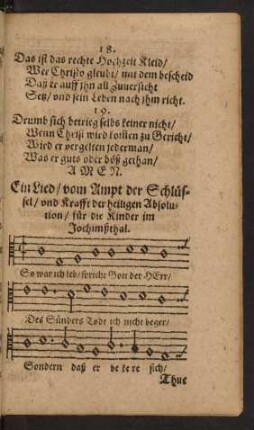 18.
Das ist das rechte Hochzeit Kleid/
Wer Christo gleubt/ mit dem bescheid
Daß er auff jhn all Zuuersicht
Setz/ vnd sein Leben nach jhm richt.
19.
Drumb sich betrieg selbs keiner nicht/
Wenn Christ wird komen zu Gericht/
Wird er vergelten jederman/
Was er guts oder böß gethan/
AMEN.
Ein Lied/ vom Ampt der Schlüs-
sel/ vnd Krafft der heiligen Absolu-
tion/ für die Kinder im
Jochimßthal.
So war ich leb/ spricht Gott der HErr/
Des Sünders Todt ich nicht beger/
Sondern daß er be ke re sich/
Thue